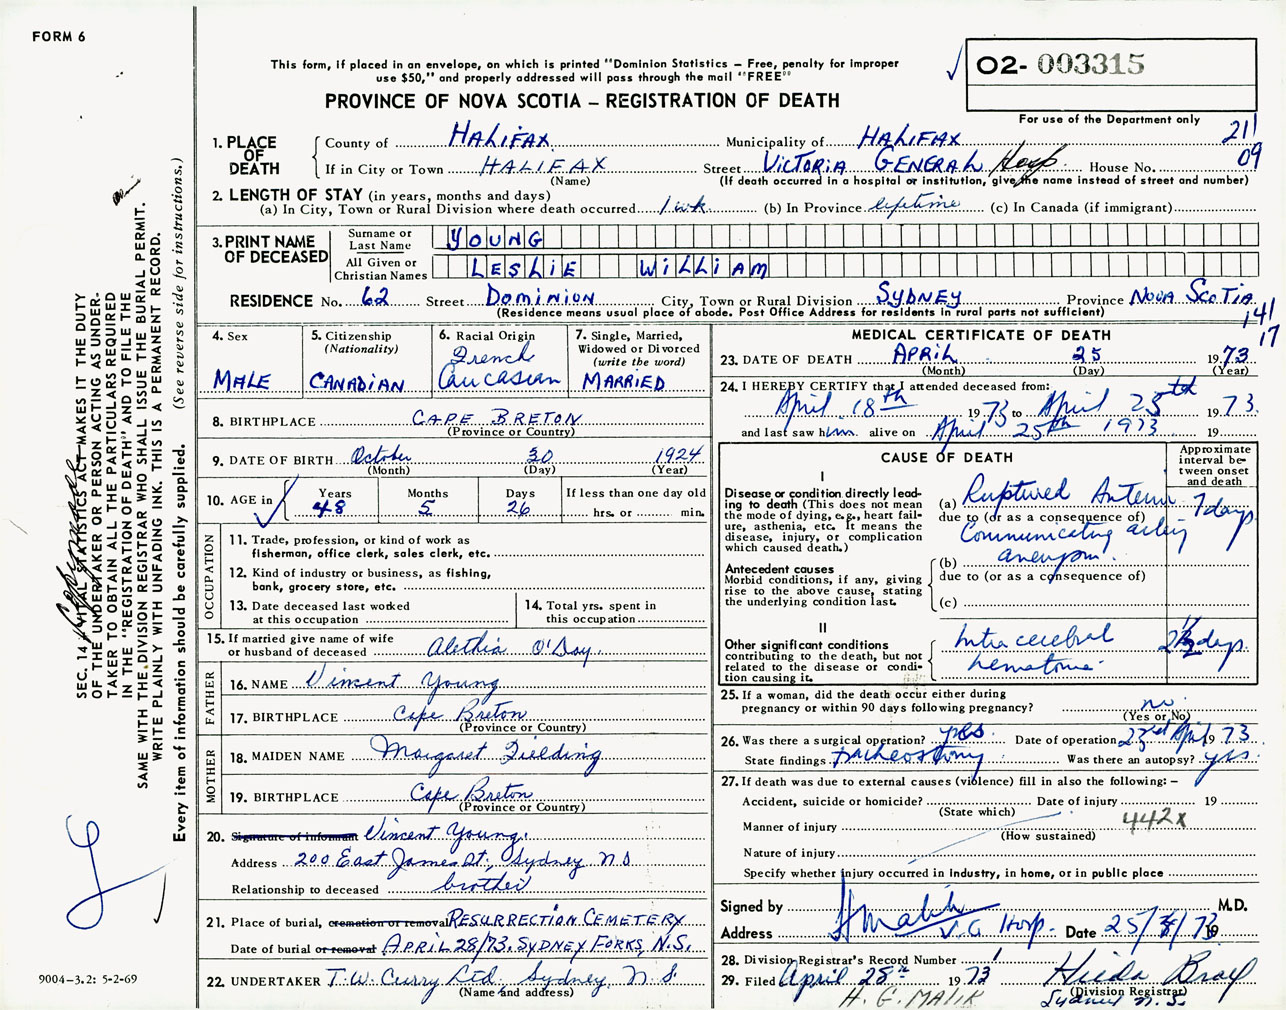 FORM 6
This form, if placed in an envelope, on which is printed "Dominion Statistics – Free, penalty for improper
use $50," and properly addressed will pass through the mail "FREE"
PROVINCE OF NOVA SCOTIA – REGISTRATION OF DEATH
02- 003315
For use of the Department only
211
09
1. PLACE OF DEATH
County of HALIFAX Municipality of HALIFAX
If in City or Town HALIFAX Street VICTORIA GENERAL Hosp. House No.
(Name) (If death occurred in a hospital or institution, give the name instead of street and number)
2. LENGTH OF STAY (in years, months and days)
(a) In City, Town or Rural Division where death occurred 1 wk (b) In Province lifetime (c) In Canada (if immigrant)
3. PRINT NAME OF DECEASED
Surname or Last Name YOUNG
All Given or Christian Names LESLIE WILLIAM
RESIDENCE No. 62 Street DOMINION City, Town or Rural Division SYDNEY Province NOVA SCOTIA
(Residence means usual place of abode. Post Office Address for residents in rural parts not sufficient)
141
17
4. Sex MALE
5. Citizenship (Nationality) CANADIAN
6. Racial Origin French Caucasian
7. Single, Married, Widowed or Divorced (write the word) MARRIED
8. BIRTHPLACE CAPE BRETON
(Province or Country)
9. DATE OF BIRTH October 30 1924
(Month) (Day) (Year)
10. AGE in Years 48 Months 5 Days 26 If less than one day old hrs. or min.
OCCUPATION
11. Trade, profession, or kind of work as
fisherman, office clerk, sales clerk, etc.
12. Kind of industry or business, as fishing,
bank, grocery store, etc.
13. Date deceased last worked
at this occupation
14. Total yrs. spent in
this occupation
15. If married give name of wife
or husband of deceased Alethia O'Day.
FATHER
16. NAME Vincent Young
17. BIRTHPLACE Cape Breton
(Province or Country)
MOTHER
18. MAIDEN NAME Margaret Fielding
19. BIRTHPLACE Cape Breton
(Province or Country)
20. Signature of informant Vincent Young.
Address 200 East James St., Sydney N S
Relationship to deceased brother
21. Place of burial, cremation or removal RESURRECTION CEMETERY
Date of burial or removal APRIL 28/73. SYDNEY FORKS, N.S.
22. UNDERTAKER T.W. Curry Ltd, Sydney, N. S.
(Name and address)
MEDICAL CERTIFICATE OF DEATH
23. DATE OF DEATH APRIL 25 1973
(Month) (Day) (Year)
24. I HEREBY CERTIFY that I attended deceased from:
April 18th 1973 to April 25th 1973.
and last saw him alive on April 25th 1973 19
CAUSE OF DEATH
Approximate interval between onset and death
I
Disease or condition directly leading
to death (This does not mean
the mode of dying, e.g., heart failure,
asthenia, etc. It means the
disease, injury, or complication
which caused death.)
(a) Ruptured Anterior 7 days
due to (or as a consequence of)
Communicating artery
(b) aneurysm.
due to (or as a consequence of)
(c)
Antecedent causes
Morbid conditions, if any, giving
rise to the above cause, stating
the underlying condition last.
II
Other significant conditions
contributing to the death, but not
related to the disease or condition
causing it.
Intra cerebral
hematoma. 2½ days.
25. If a woman, did the death occur either during
pregnancy or within 90 days following pregnancy? no
(Yes or No)
26. Was there a surgical operation? yes. Date of operation 23rd April 1973.
State findings tracheostomy Was there an autopsy? yes
27. If death was due to external causes (violence) fill in also the following:–
Accident, suicide or homicide? Date of injury 19
(State which)
Manner of injury 442x
(How sustained)
Nature of injury
Specify whether injury occurred in industry, in home, or in public place
Signed by H Malik M.D.
Address V.G. Hosp. Date 25/4/73 19
28. Division Registrar's Record Number 1
29. Filed April 28th 1973 Hilda
(Division Registrar)
H. G. MALIK Sydney N. S.
SEC. 14 VITAL STATISTICS ACT MAKES IT THE DUTY
OF THE UNDERTAKER OR PERSON ACTING AS UNDERTAKER
TO OBTAIN ALL THE PARTICULARS REQUIRED
IN THE "REGISTRATION OF DEATH" AND TO FILE THE
SAME WITH THE DIVISION REGISTRAR WHO SHALL ISSUE THE BURIAL PERMIT.
WRITE PLAINLY WITH UNFADING INK. THIS IS A PERMANENT RECORD.
Every item of information should be carefully supplied. (See reverse side for instructions.)
9004-3.2: 5-2-69